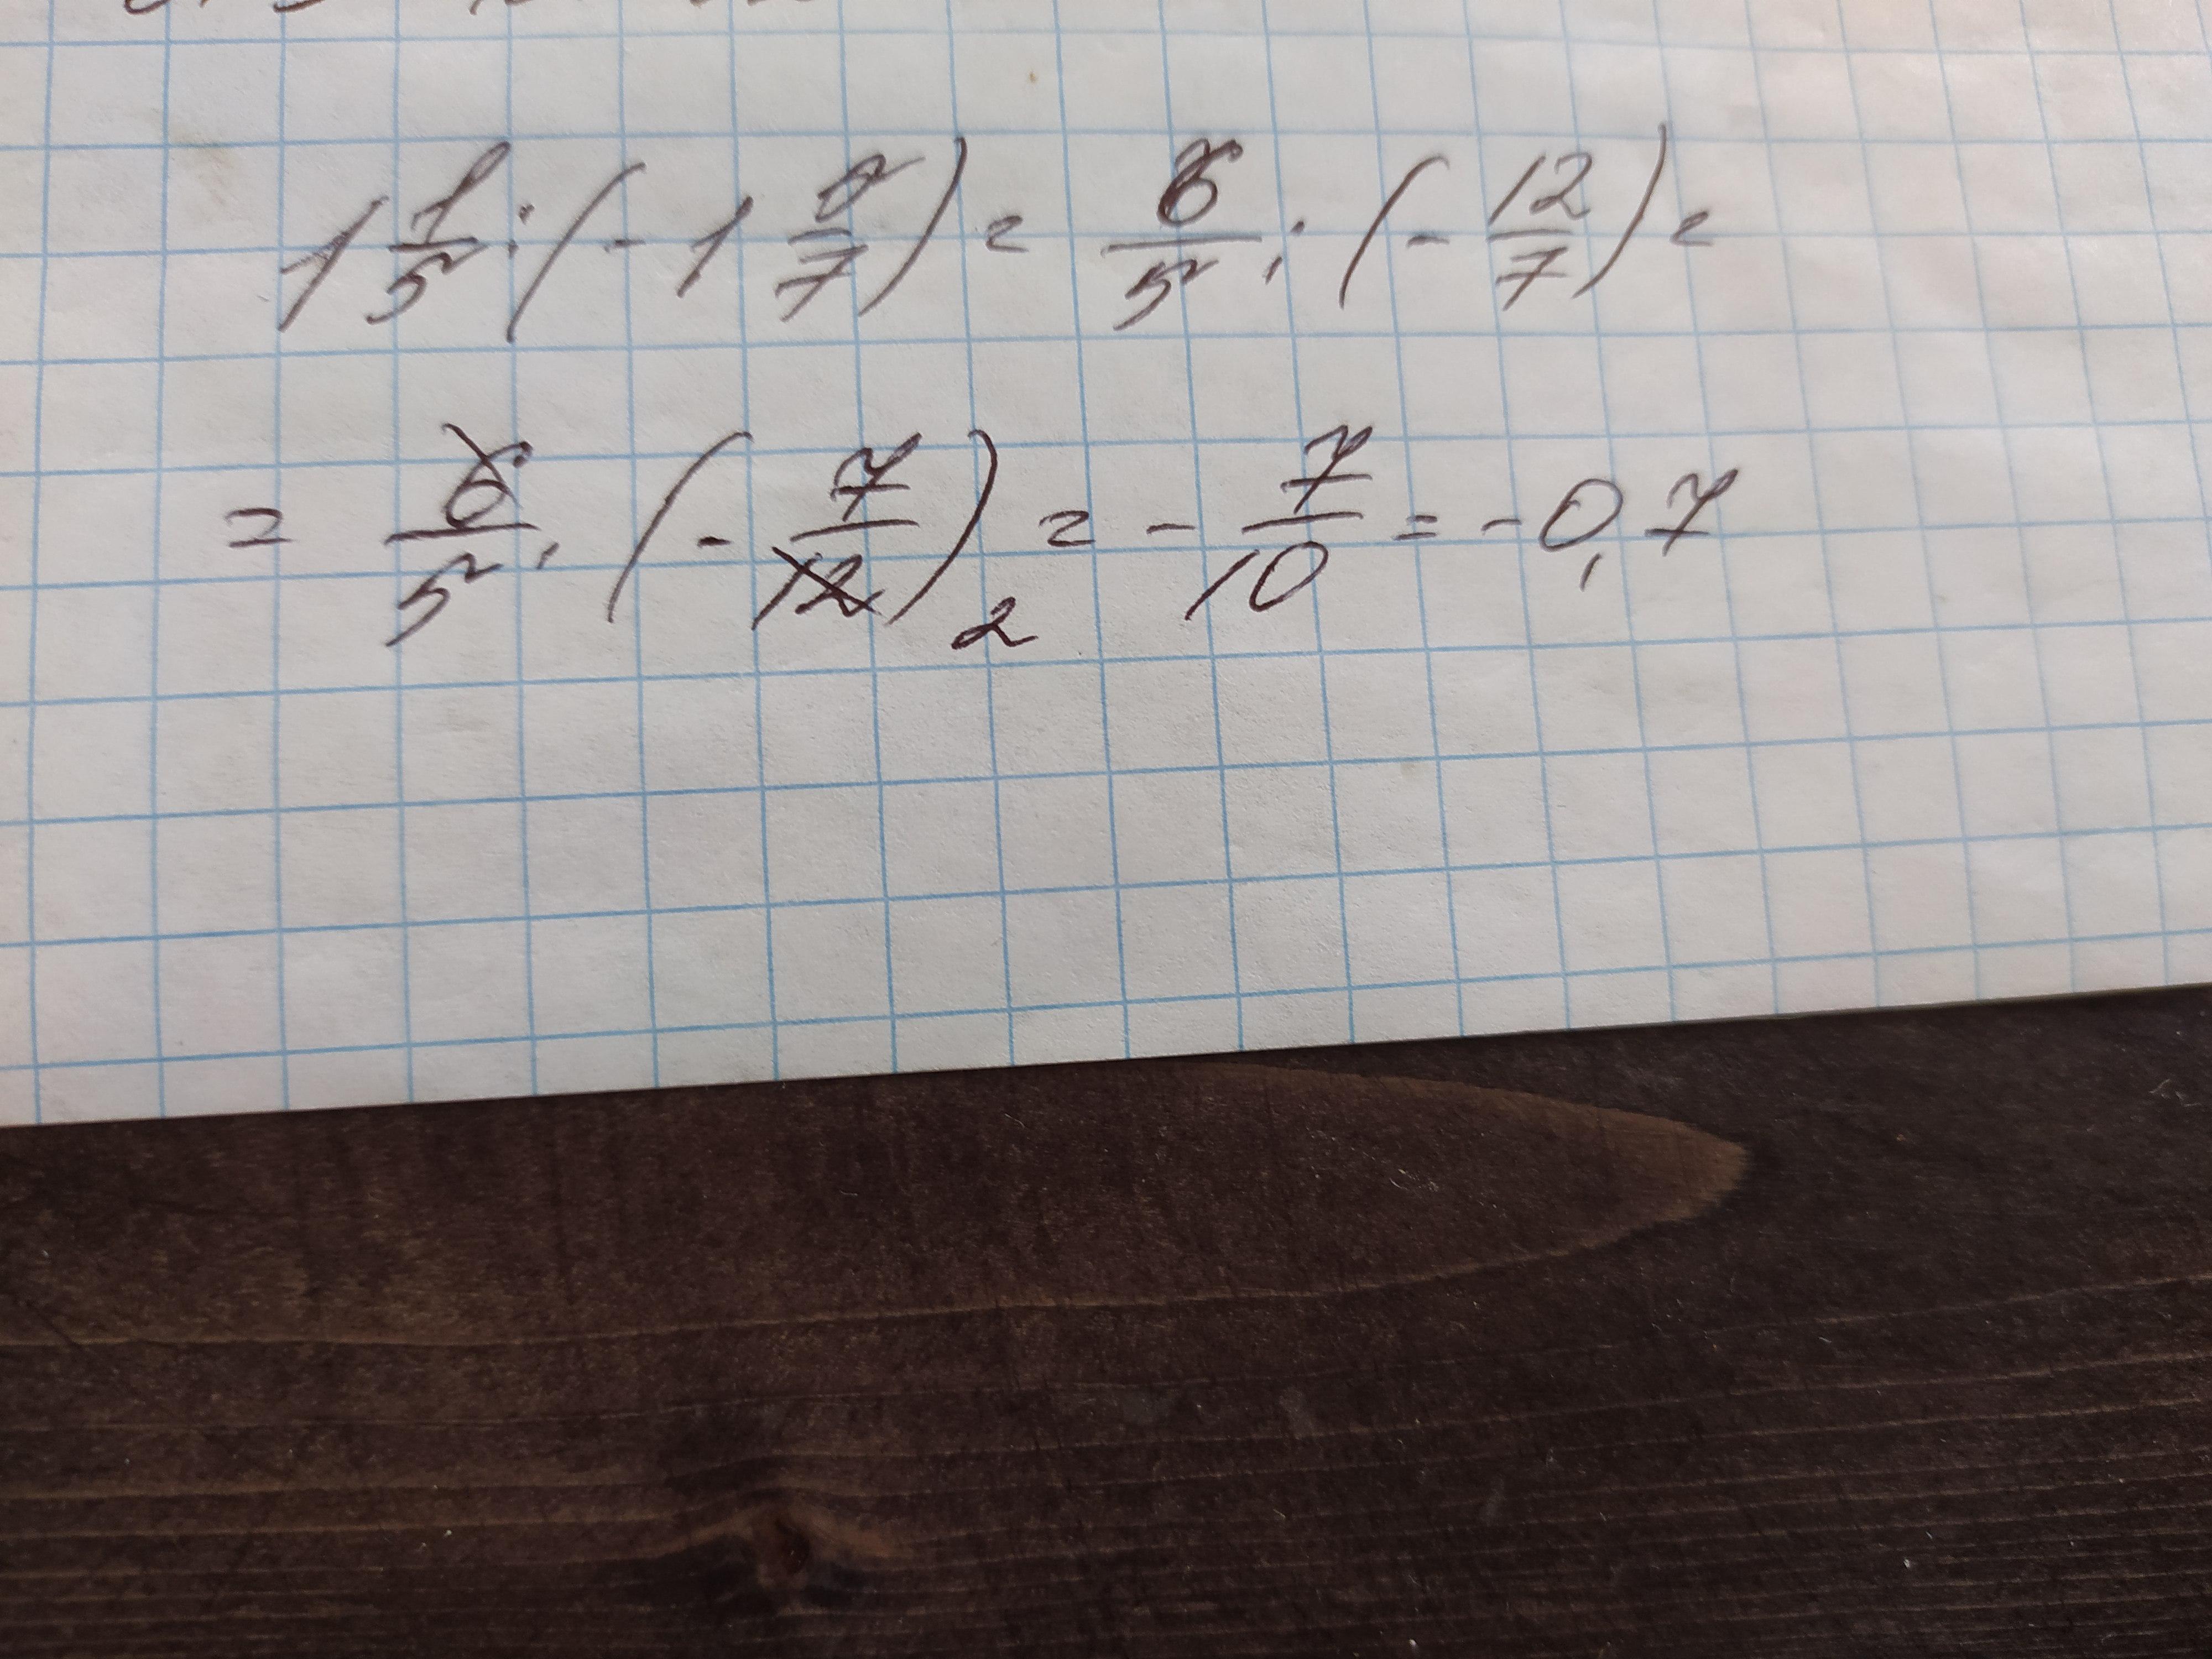 1 1/5 : (- 1 5/7) = 6/5 : (- 12/7) =
= 6/5 · (- 7/12) 2 = - 7/10 = - 0,7